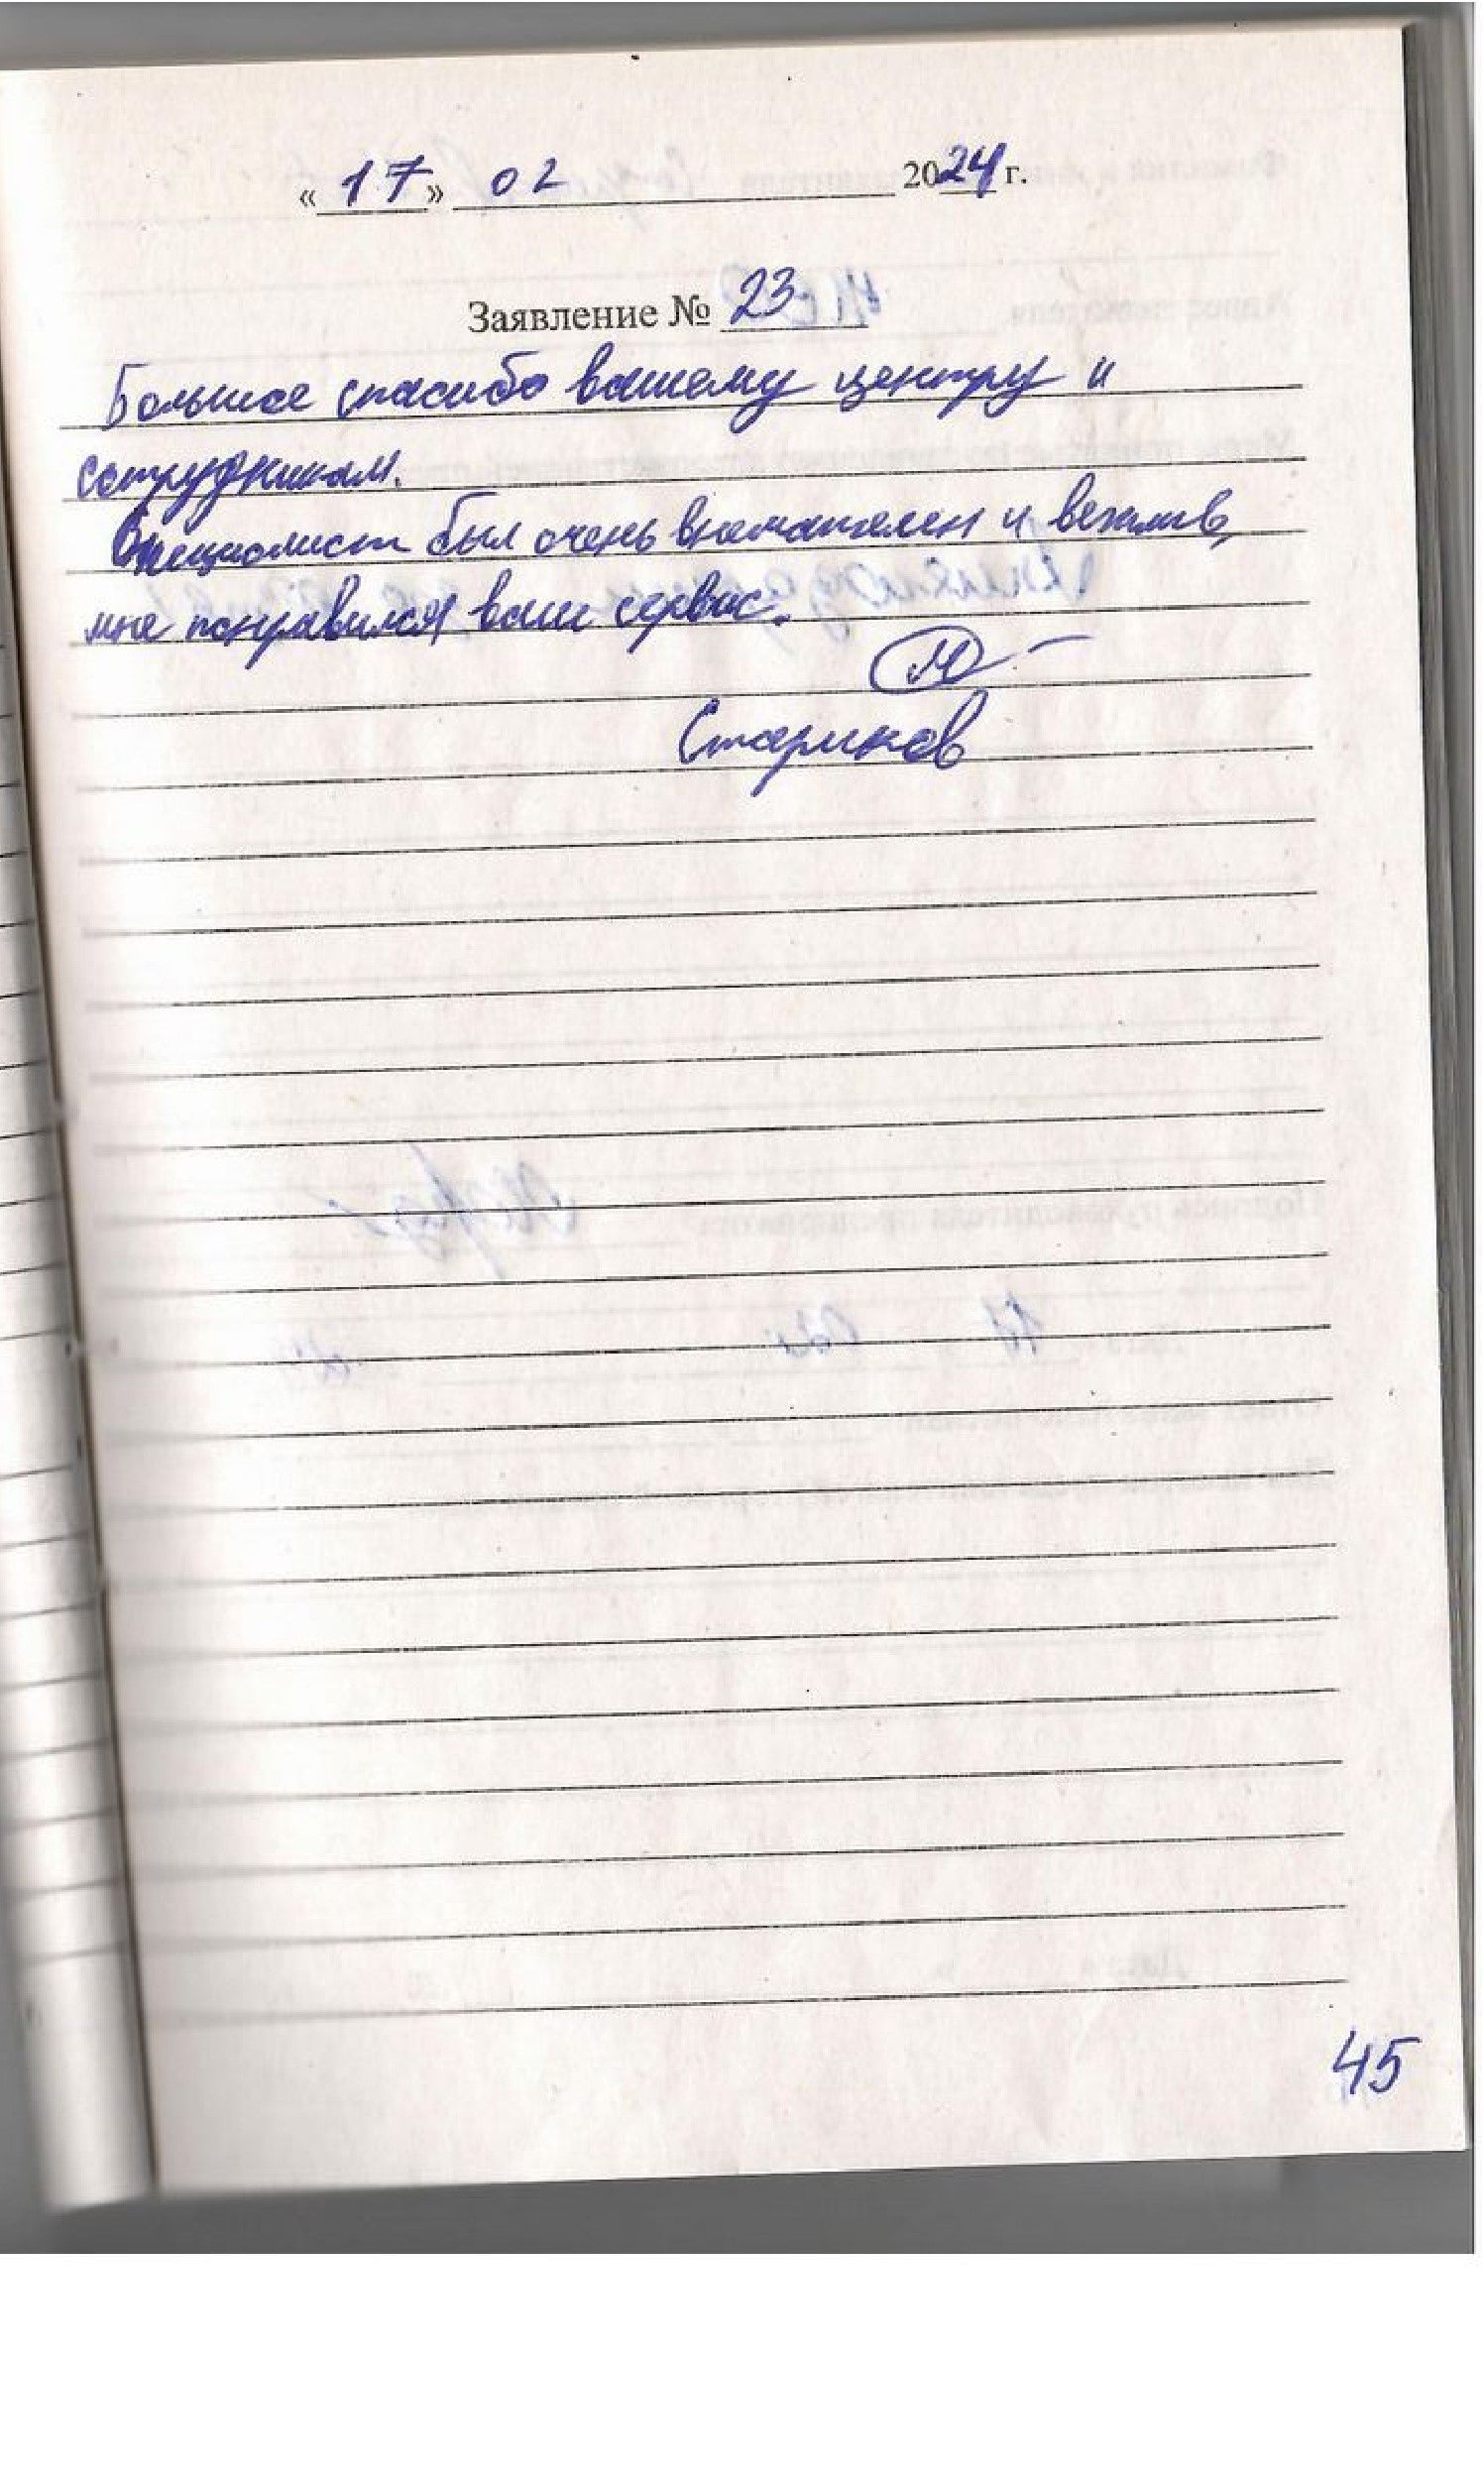 «17» 02 2024 г.
Заявление № 23
Большое спасибо вашему центру и
сотрудникам.
Специалист был очень внимателен и вежлив,
мне понравился ваш сервис.
Стариков
45